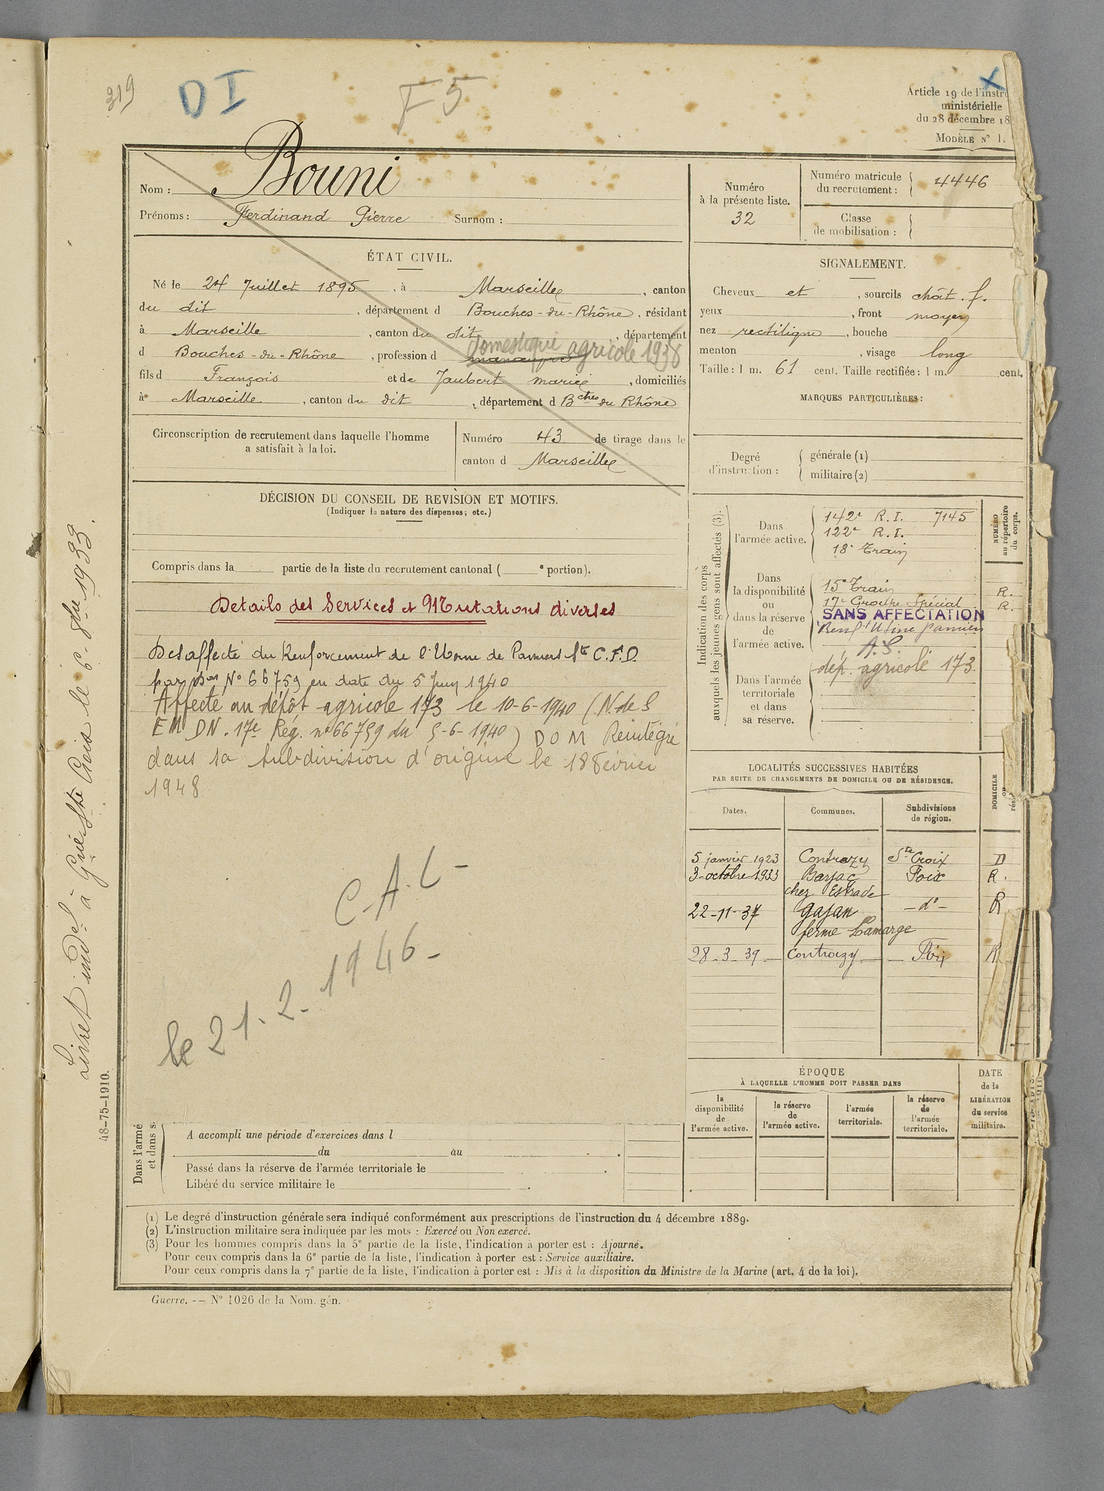 319
DI
F5
X
Article 19 de l'instr
ministérielle
du 28 décembre 18
MODÈLE N° 1.
Nom : Bouni
Prénoms : Ferdinand Pierre Surnom :
Numéro
à la présente liste.
32
Numéro matricule
du recrutement : 4446
Classe
de mobilisation :
ÉTAT CIVIL.
Né le 24 Juillet 1895, à Marseille, canton
du dit, département d Bouches-du-Rhône, résidant
à Marseille, canton du dit, département
d Bouches-du-Rhône, profession d manœuvre domestique agricole 1938
fils d François et de Jaubert marie, domiciliés
à Marseille, canton du dit, département d Bches du Rhône
SIGNALEMENT.
Cheveux et, sourcils chât. f.
yeux, front moyen
nez rectiligne, bouche
menton, visage long
Taille : 1 m. 61 cent. Taille rectifiée : 1 m. cent.
MARQUES PARTICULIÈRES :
Circonscription de recrutement dans laquelle l'homme
a satisfait à la loi.
Numéro 43 de tirage dans le
canton d Marseille
Degré
d'instruction :
générale (1)
militaire (2)
DÉCISION DU CONSEIL DE REVISION ET MOTIFS.
(Indiquer la nature des dispenses; etc.)
Compris dans la partie de la liste du recrutement cantonal ( ° portion).
Détails des Services et Mutations diverses
Désaffecté du Renforcement de l'Usine de Pamiers Sté C.F.D.
par Don N° 66759 en date du 5 Juin 1940
Affecté au dépôt agricole 173 le 10-6-1940 (N. de S
EM DN. 17e Rég. n° 66759 du 5-6-1940) DOM Réintégré
dans sa subdivision d'origine le 18 Février
1948
C.A.L-
le 21.2.1946-
Livret indel à Gnie Ste Croix le 6-8bre 1933.
48-75-1910.
Indication des corps
auxquels les jeunes gens sont affectés (3).
Dans
l'armée active.
142e R.I. 7145
122e R.I.
18e Train
NUMÉRO
au répertoire
du corps.
Dans
la disponibilité
ou
dans la réserve
de
l'armée active.
15e Train R.
17e Groupe Spécial R.
SANS AFFECTATION
Renft Usine Pamiers
A.S.
dép. agricole 173.
Dans l'armée
territoriale
et dans
sa réserve.
LOCALITÉS SUCCESSIVES HABITÉES
PAR SUITE DE CHANGEMENTS DE DOMICILE OU DE RÉSIDENCE.
Dates. Communes. Subdivisions
de région.
DOMICILE
ou
5 janvier 1923 Contrazy Ste Croix D
3-octobre 1933 Barjac Foix R.
chez Estrade
22-11-37 gajan -d°- R
ferme Lamarge
28-3-39 Contrazy Foix R
ÉPOQUE
À LAQUELLE L'HOMME DOIT PASSER DANS
la
disponibilité
de
l'armée active.
la réserve
de
l'armée active.
l'armée
territoriale.
la réserve
de
l'armée
territoriale.
DATE
de la
LIBÉRATION
du service
militaire.
Dans l'armé
et dans s
A accompli une période d'exercices dans l
du au
Passé dans la réserve de l'armée territoriale le
Libéré du service militaire le
(1) Le degré d'instruction générale sera indiqué conformément aux prescriptions de l'instruction du 4 décembre 1889.
(2) L'instruction militaire sera indiquée par les mots : Exercé ou Non exercé.
(3) Pour les hommes compris dans la 5e partie de la liste, l'indication à porter est : Ajourné.
Pour ceux compris dans la 6e partie de la liste, l'indication à porter est : Service auxiliaire.
Pour ceux compris dans la 7e partie de la liste, l'indication à porter est : Mis à la disposition du Ministre de la Marine (art. 4 de la loi).
Guerre. — N° 1026 de la Nom. gén.